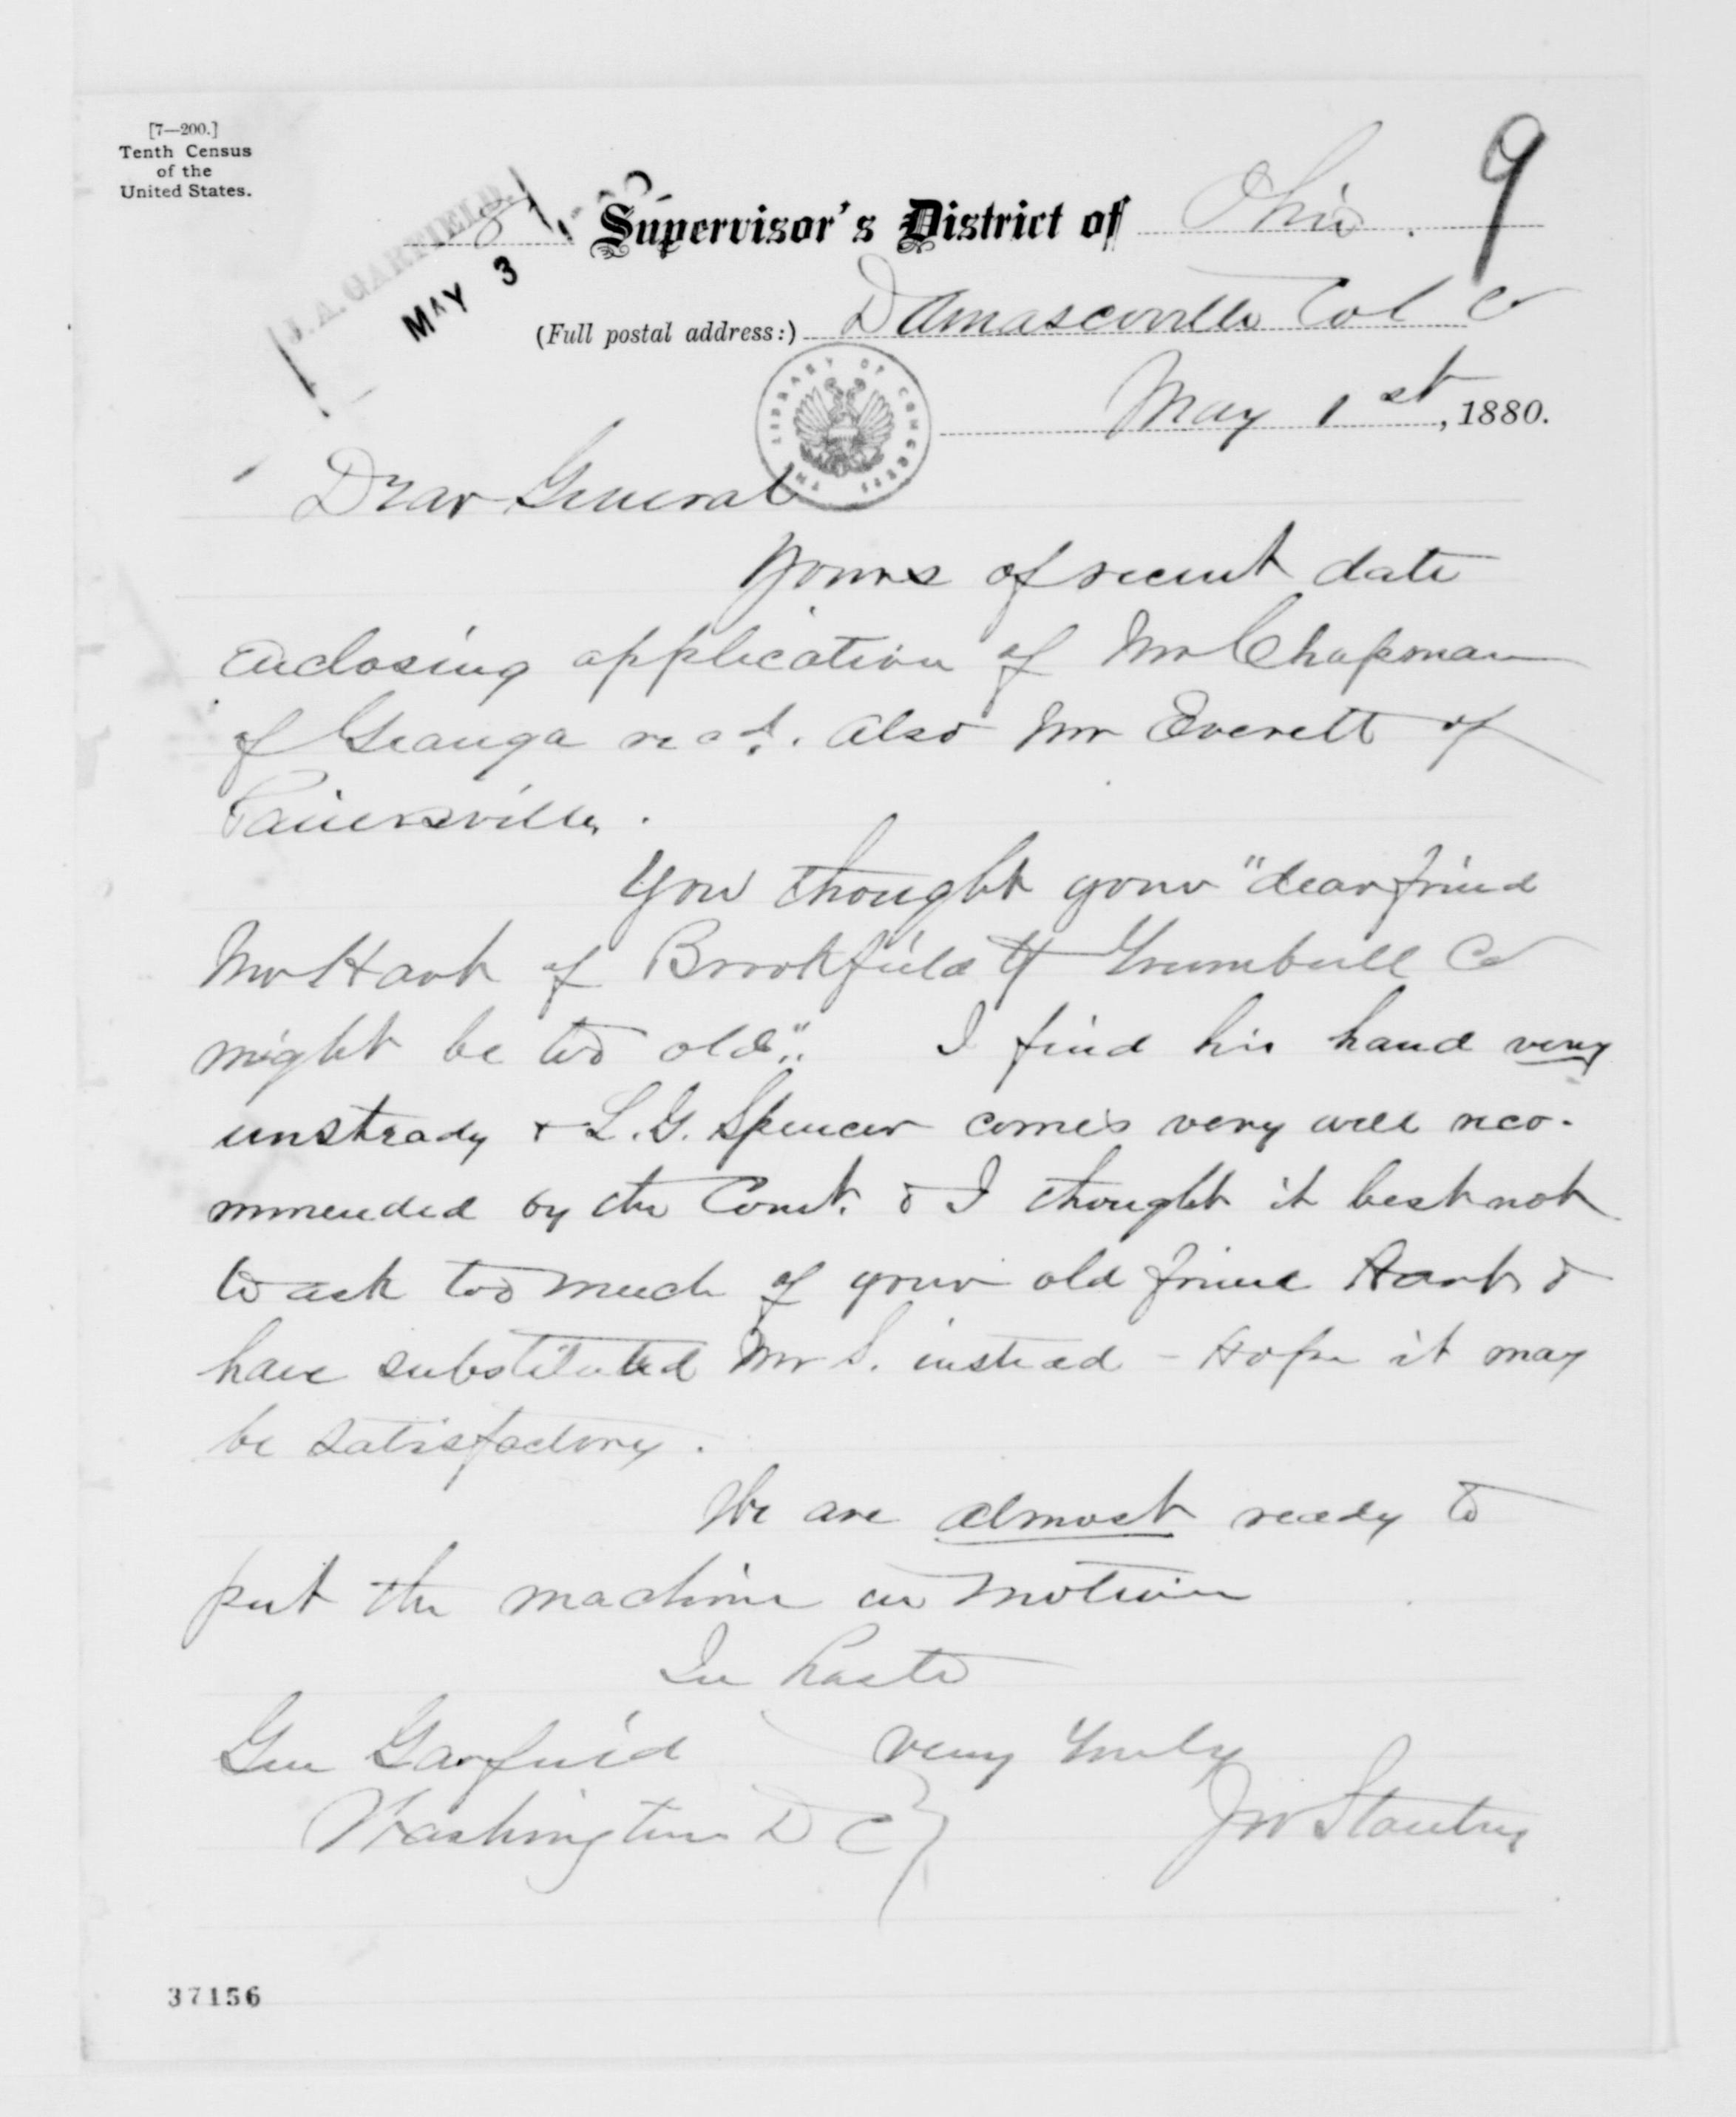 [7—200.]
Tenth Census
of the
United States.
9
J. A. GARFIELD.
MAY 3
8 Supervisor's District of Ohio.
(Full postal address:) Damascoville Col Co
May 1st, 1880.
THE LIBRARY OF CONGRESS
Dear General
Yours of recent date
enclosing application of Mr Chapman
of Geauga recd. Also Mr Everett of
Painesville.
You thought your "dear friend
Mr Hart of Brookfield Tp Trumbull Co
might be too old". I find his hand very
unsteady & L. G. Spencer comes very well reco-
mmended by the Comt. & I thought it best not
to ask too much of your old friend Hart &
have substituted Mr S. instead - Hope it may
be satisfactory.
We are almost ready to
put the machine in motion
In haste
Gen Garfield very truly
Washington D C } JW Stanley
37156